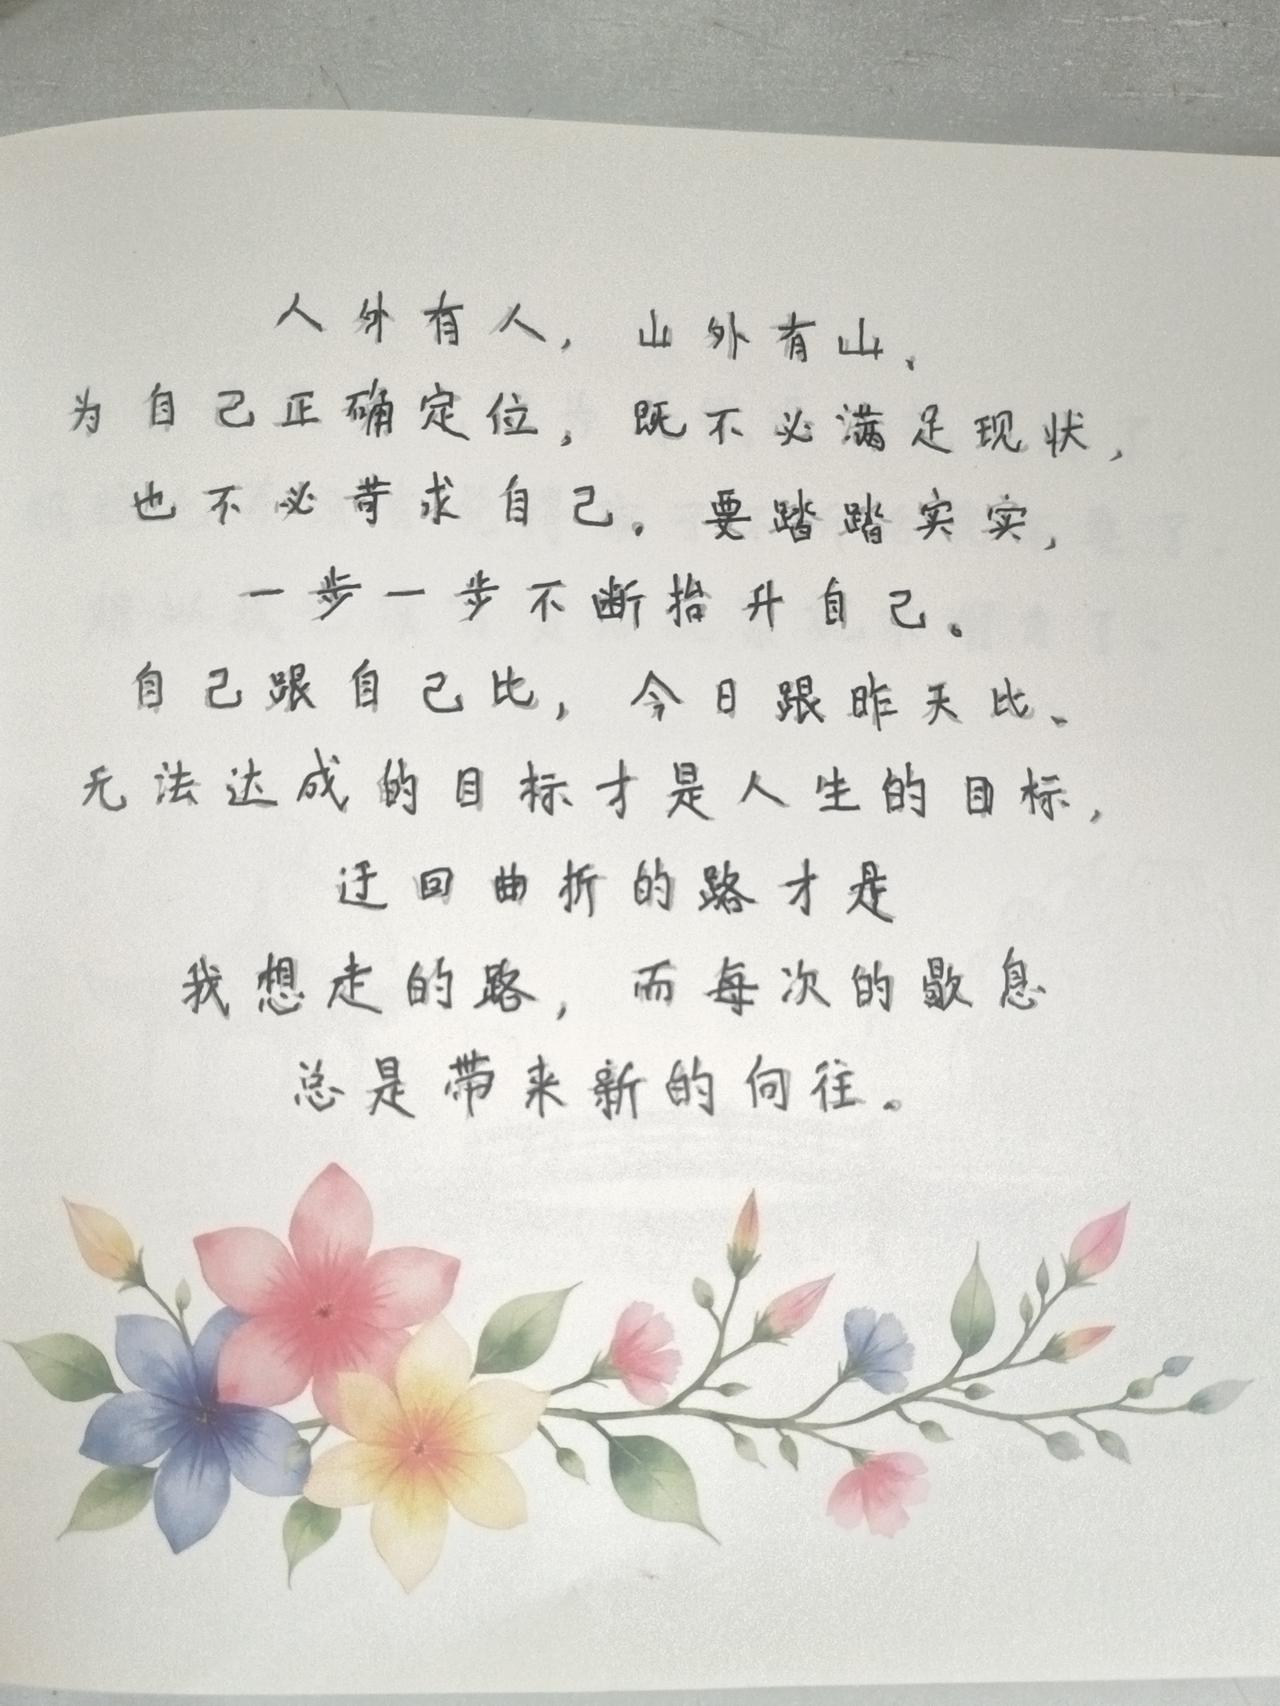 人外有人，山外有山、
为自己正确定位，既不必满足现状，
也不必苛求自己。要踏踏实实，
一步一步不断抬升自己。
自己跟自己比，今日跟昨天比、
无法达成的目标才是人生的目标，
迂回曲折的路才是
我想走的路，而每次的歇息
总是带来新的向往。